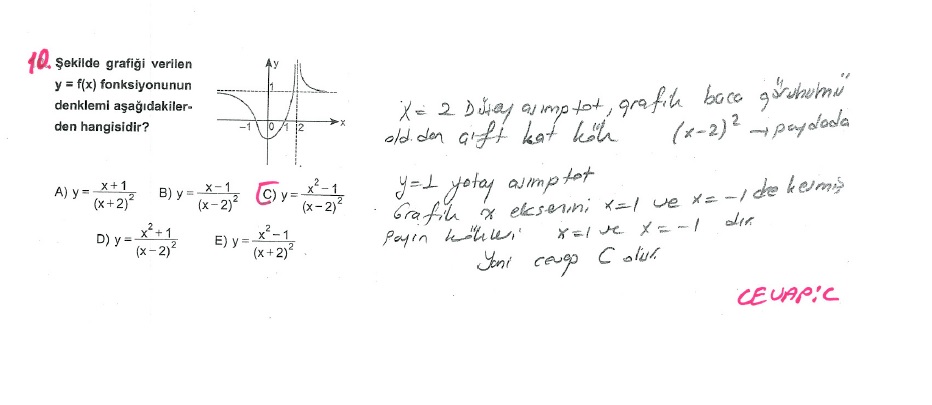 10. Şekilde grafiği verilen
y = f(x) fonksiyonunun
denklemi aşağıdakiler-
den hangisidir?
y
1
-1 0 1 2 x
A) y = (x+1)/(x+2)² B) y = (x-1)/(x-2)² C) y = (x²-1)/(x-2)²
D) y = (x²+1)/(x-2)² E) y = (x²-1)/(x+2)²
x = 2 Düşey asimptot, grafik baca görünümü
old.dan çift kat kök (x-2)² → paydada
y=1 yatay asimptot
Grafik x eksenini x=1 ve x=-1 de kesmiş
Payın kökleri x=1 ve x=-1 dir.
Yani cevap C olur.
CEVAP:C